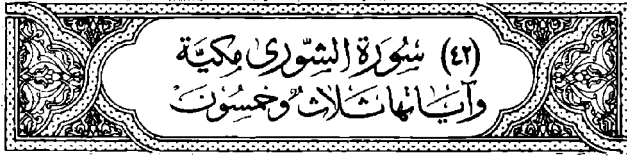 (٤٢) سُورَة الشّورى مكيَّة
وآيَاتها ثَلاثٌ وَخمسُونَ